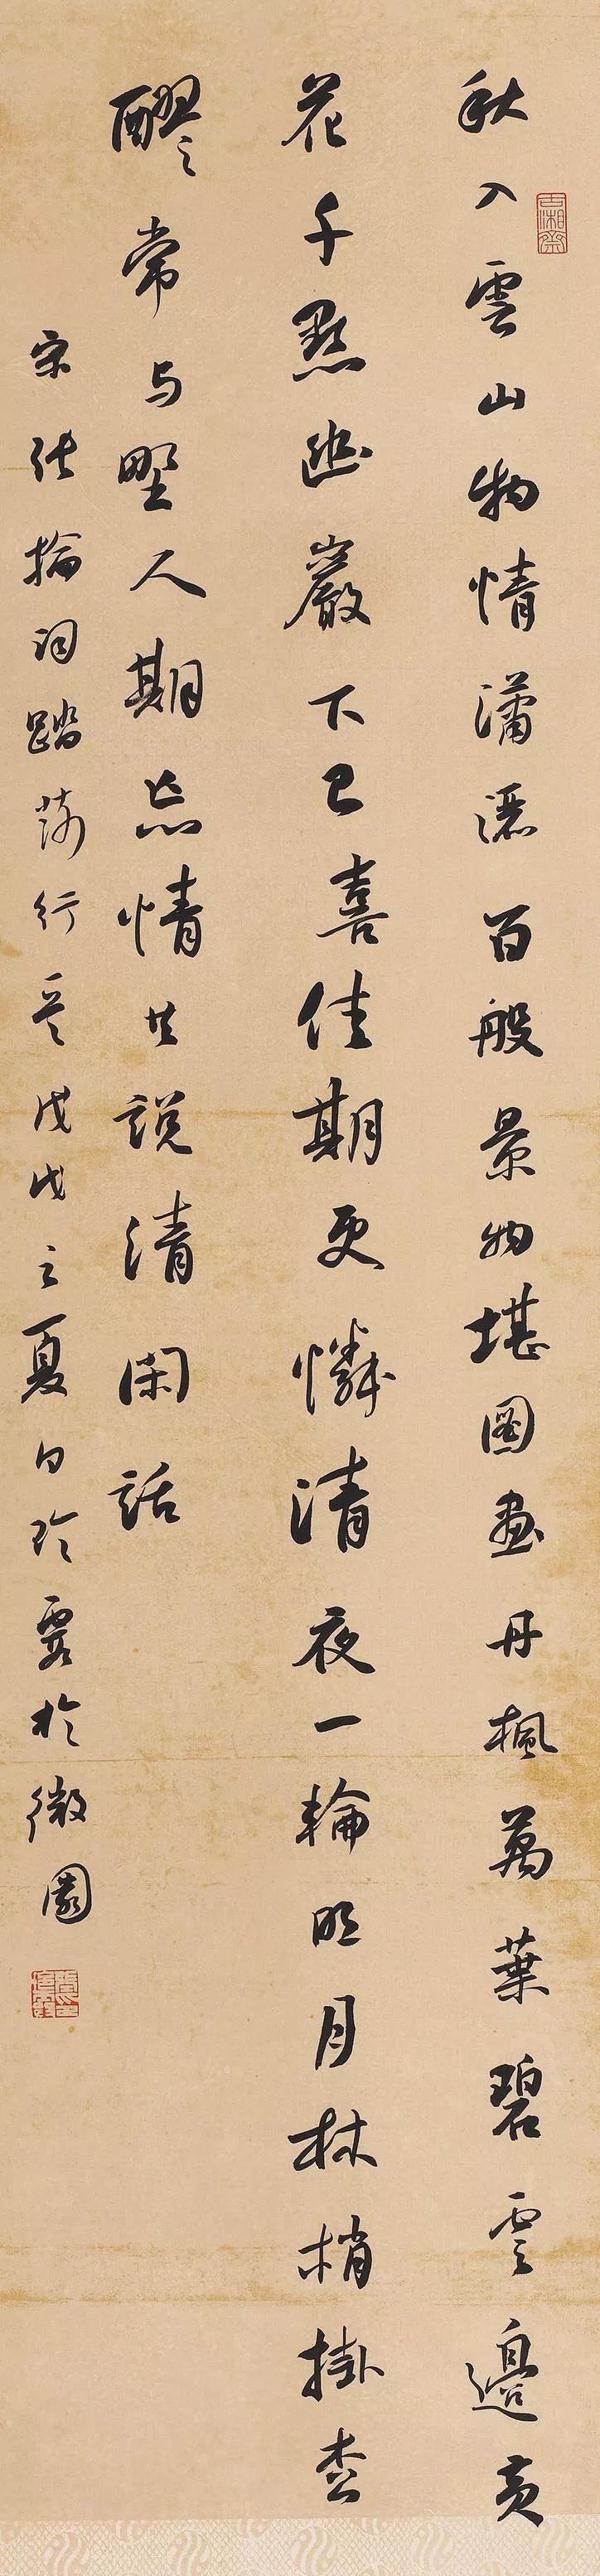 秋入雲山物情瀟灑百般景物堪圖畫丹楓萬葉碧雲邊黃
花千點幽巖下已喜佳期更憐清夜一輪明月林梢掛松
醪常與野人期忘情共說清閑話
宋張掄詞踏莎行一首戊戌之夏白玲露於微園
古湘齋